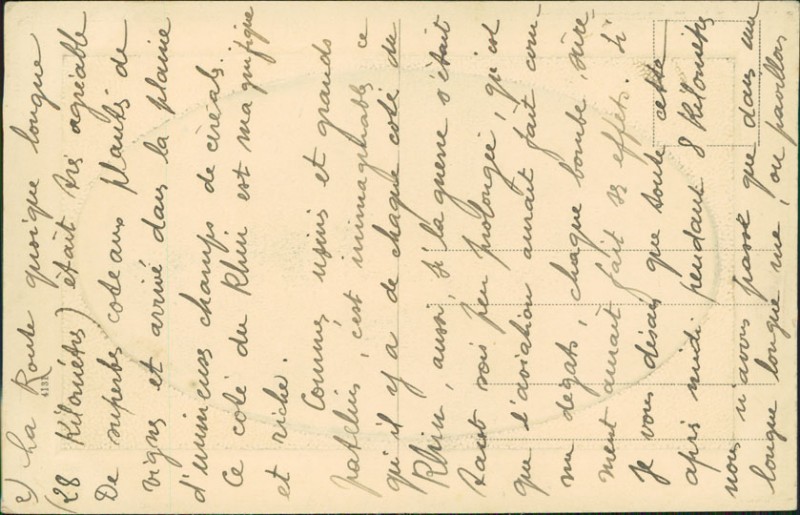 2) La Route quoique longue
(28 Kilomètres) était très agréable
De superbes coteaux plantés de
vignes et arrivé dans la plaine
d'immenses champs de céréals.
Ce coté du Rhin est magnifique
et riche.
Comme usines et grands
patelins, c'est inimaginable ce
qu'il y a de chaque coté du
Rhin, aussi, si la guerre s'était
tant sois peu prolongée, qu'est
que l'aviation aurait fait com-
me dégats, chaque bombe, sûre-
ment aurait fait ses effets. Si
je vous désais que toute cette
après midi pendant 8 Kilomètres
nous n'avons passé que dans une
longue longue rue, ou pavillons
4131